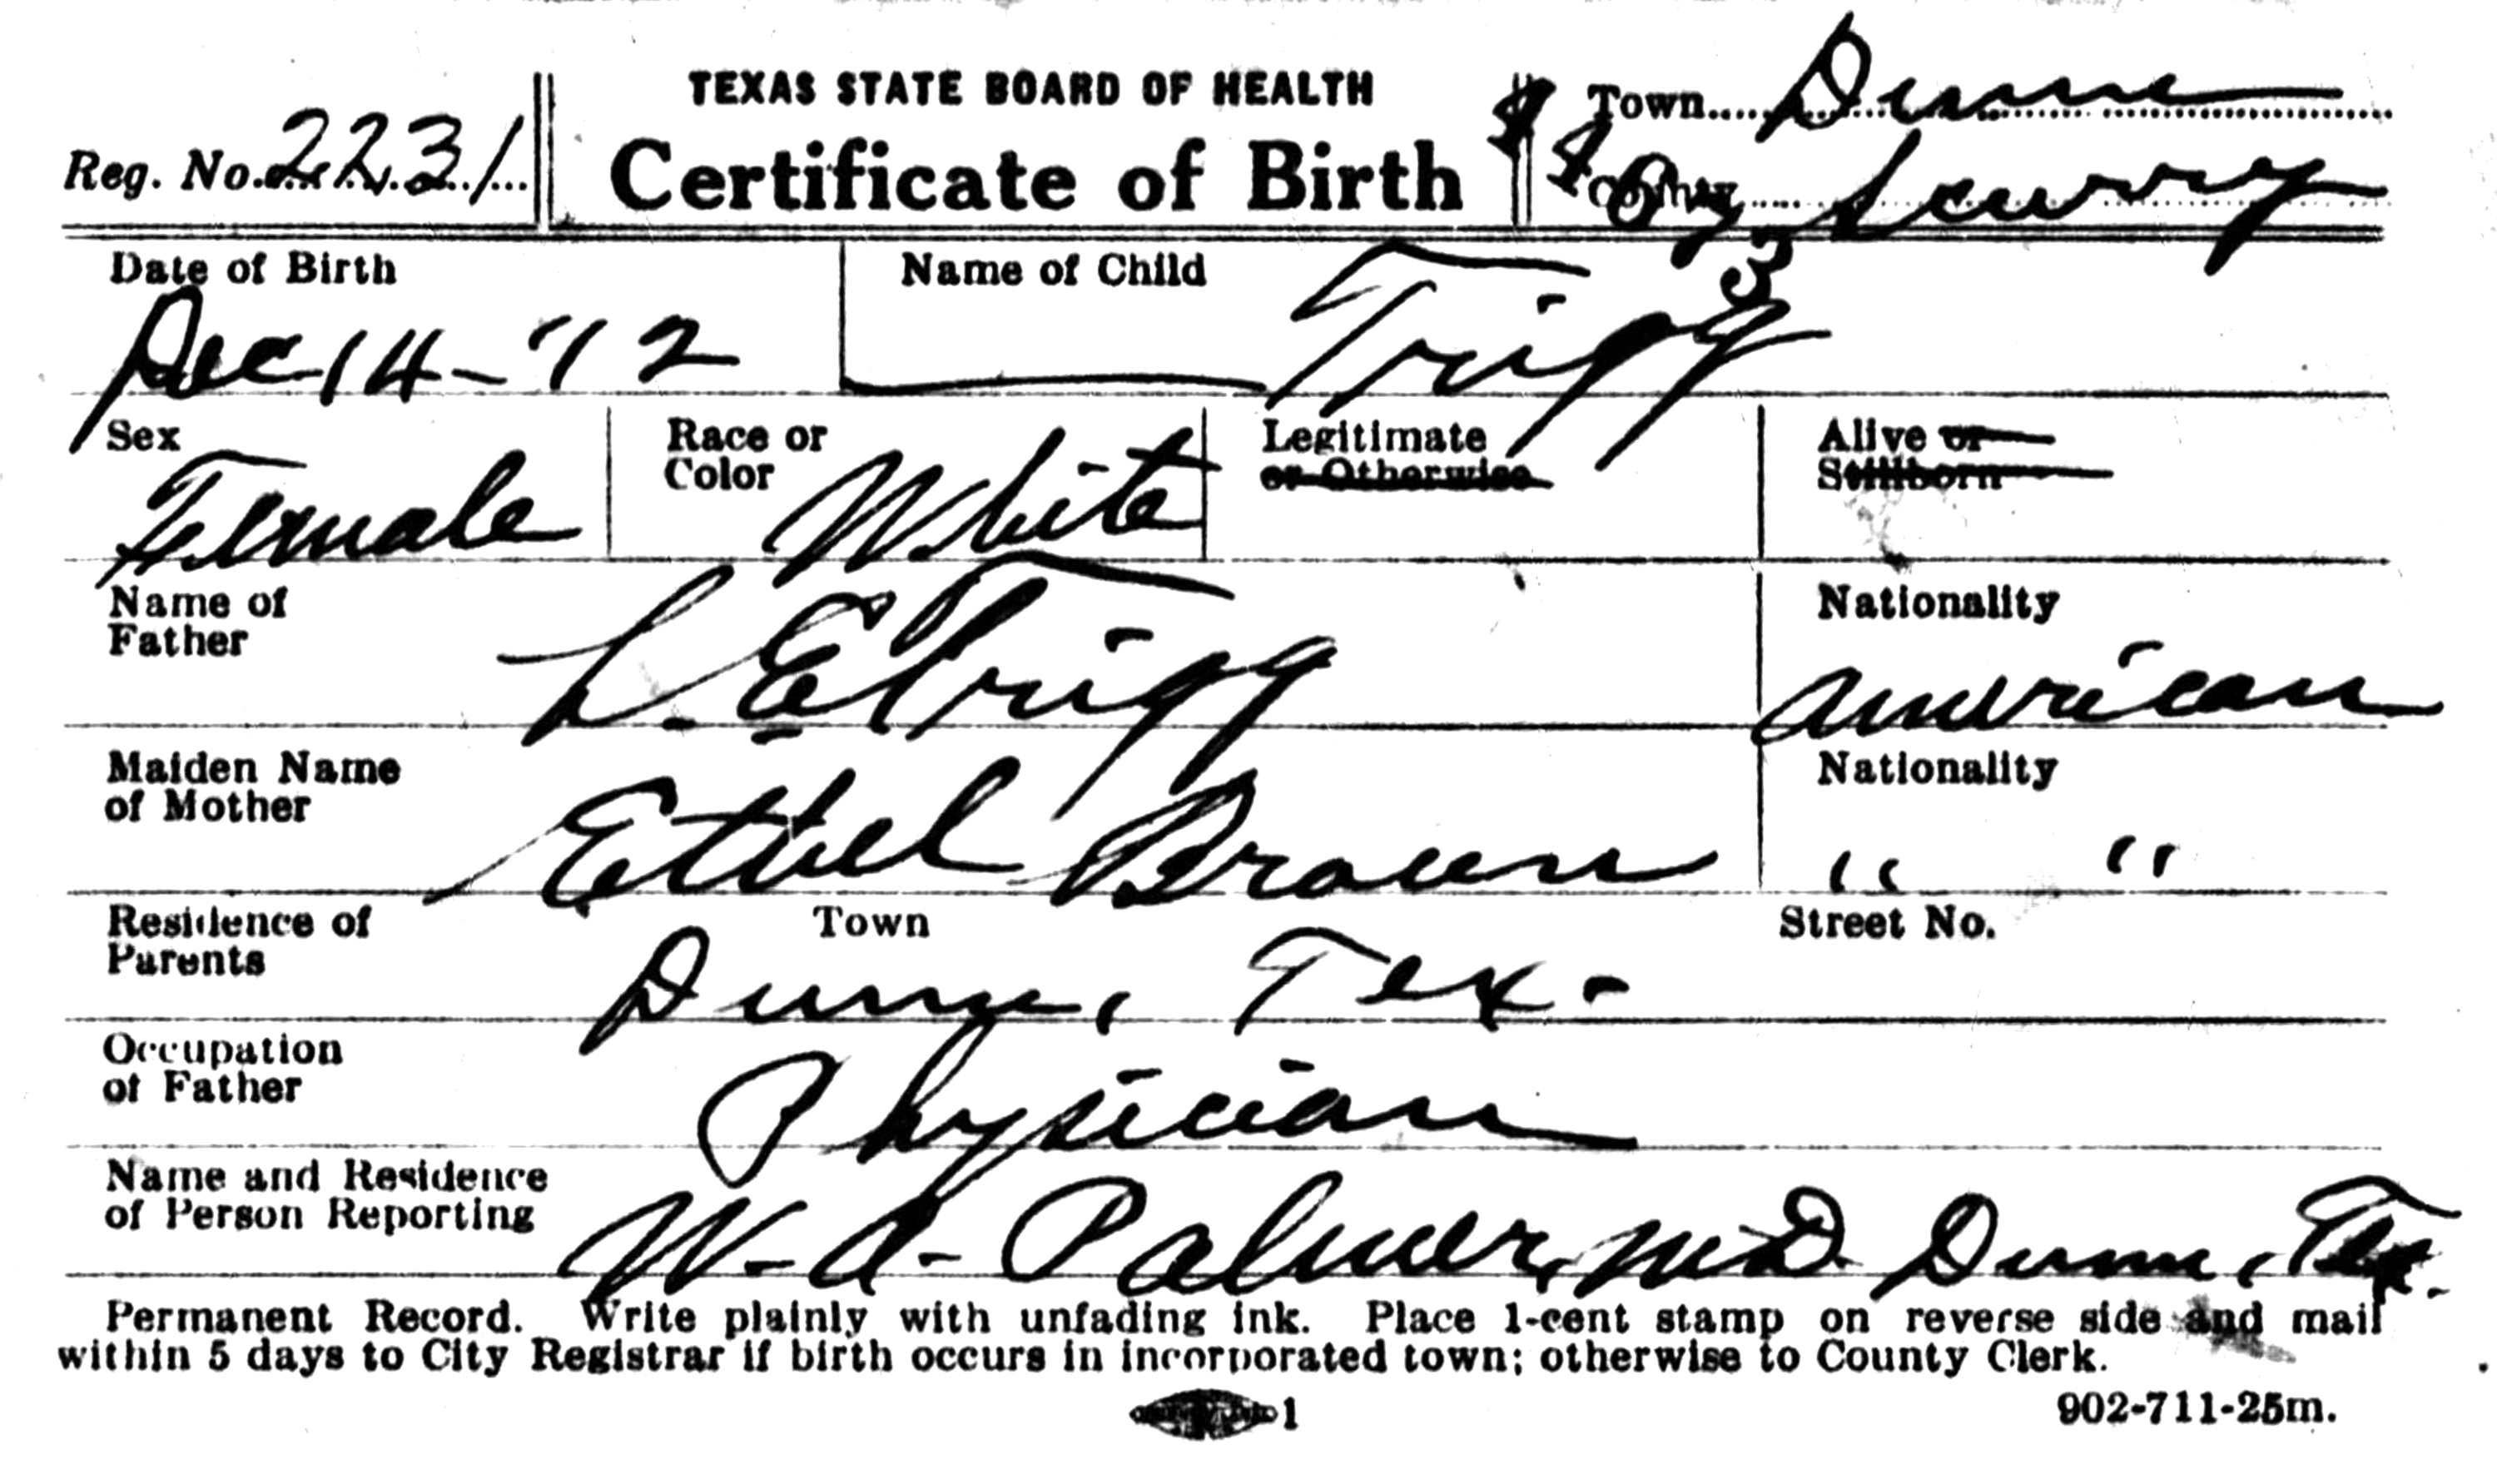 TEXAS STATE BOARD OF HEALTH
Certificate of Birth
Reg. No. 2231
Town Dunn
County Scurry
Date of Birth
Dec 14 - '12
Name of Child
Trigg
Sex
Female
Race or
Color
White
Legitimate
or Otherwise
Alive or
Stillborn
Name of
Father
L. E. Trigg
Nationality
American
Maiden Name
of Mother
Ethel Brown
Nationality
" "
Residence of
Parents
Town
Dunn, Tex.
Street No.
Occupation
of Father
Physician
Name and Residence
of Person Reporting
W. A. Palmer, M.D. Dunn, Tex.
Permanent Record. Write plainly with unfading ink. Place 1-cent stamp on reverse side and mail
within 5 days to City Registrar if birth occurs in incorporated town; otherwise to County Clerk.
1
902-711-25m.